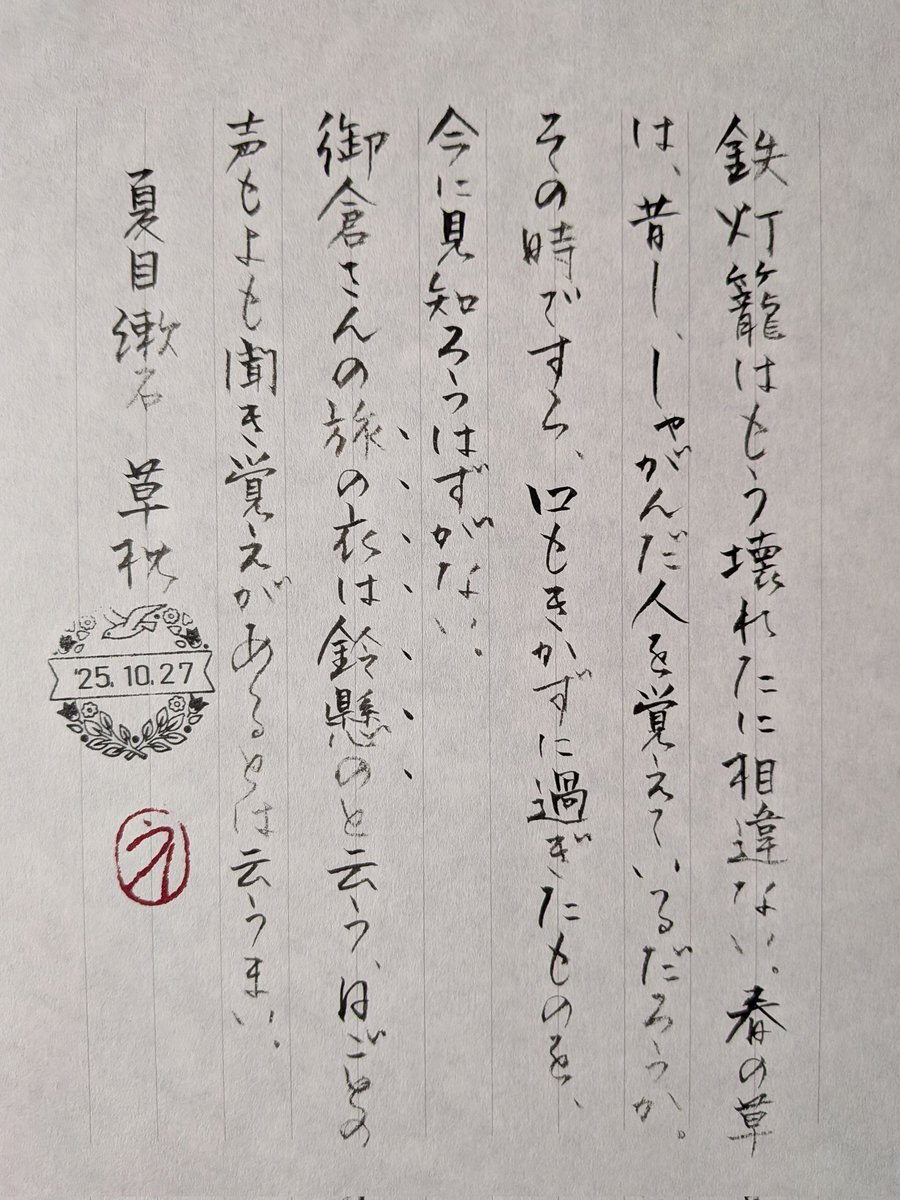 鉄灯籠はもう壊れたに相違ない。春の草
は、昔し、しゃがんだ人を覚えているだろうか。
その時ですら、口もきかずに過ぎたものを、
今に見知ろうはずがない。
御倉さんの旅の衣は鈴懸のと云う、日ごとの
声もよも聞き覚えがあるとは云うまい。
夏目漱石 草枕
'25.10.27